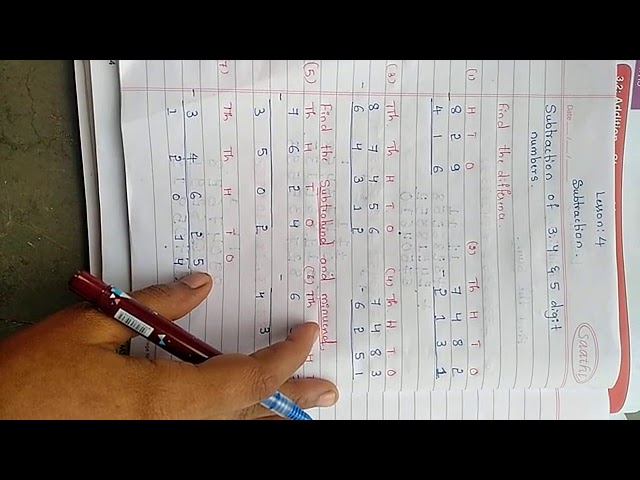 3.2. Addition
Lesson: 4
Date
Subtraction.
Subtraction of 3, 4, & 5 digit
numbers.
saathi
Find the differna
(1) H T O
8 2 9
4 1 6
(2) Th H T O
7 4 8 2
- 2 1 3 1
(3) TTh Th H T O
8 7 4 5 6
- 6 4 3 1 2
(4) Th H T O
7 4 8 3
- 6 2 5 1
Find the Subtrahend and minuend.
(5) Th H T O
7 6 2 4
- 3 5 0 2
(6) Th H T
6
- 4 3
7) TTh Th H T O
3 4 6 2 5
- 1 2 0 1 4